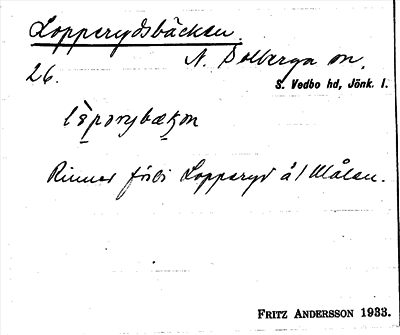 Lopperydsbäcken.
N. Solberga sn.
26.
S. Vedbo hd, Jönk. l.
Rinner förbi Lopperyd å / Målen.
FRITZ ANDERSSON 1933.